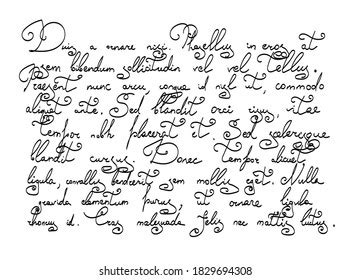 Duis a ornare nisi. Phasellus in eros at
sem bibendum sollicitudin vel vel Tellus.
Praesent nunc arcu, congue id nisl ut, commodo
aliquet ante. Sed blandit orci risus, vitae
tempor nibh placerat et. Sed scelerisque
blandit cursus. Donec tempor aliquet
ligula, convallis hendrerit sem mollis eget. Nulla
gravida elementum purus, at ornare ligula
rhoncus id. Cras malesuada felis nec mattis luctus.
shutterstock.com · 1829694308